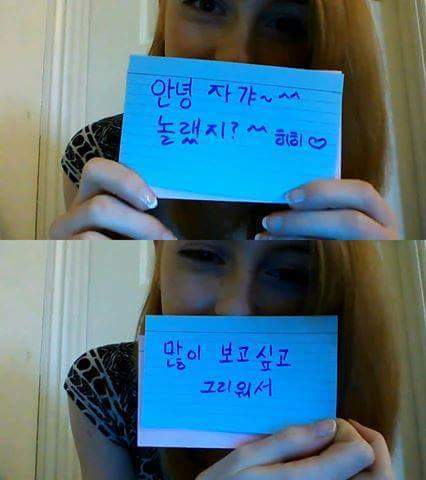 안녕 자갸~ ^^
놀랬지? ^^ 히히 ♡
많이 보고싶고
그리워서